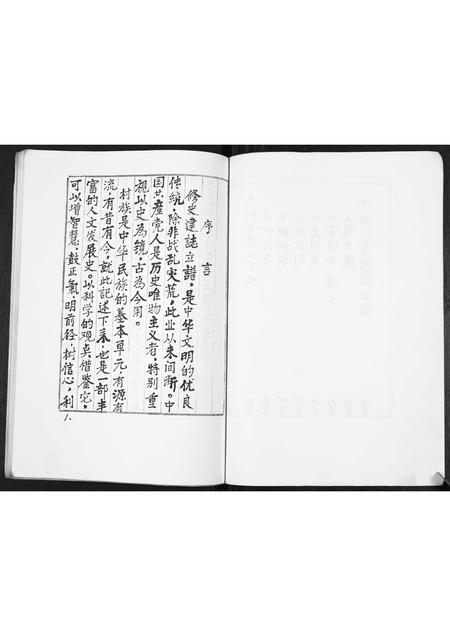 序言
修史建誌立譜，是中华文明的优良
传统，除非战乱灾荒，此业以来间断。中
国共産党人是历史唯物主义者，特别重
視以史為镜，古為今用。
村族是中华民族的基本单元，有源有
流，有昔有今，就此记述下来，也是一部丰
富的人文发展史。以科学的观点借鉴它，
可以增智慧、鼓正氣，明前径，树信心，利
1.